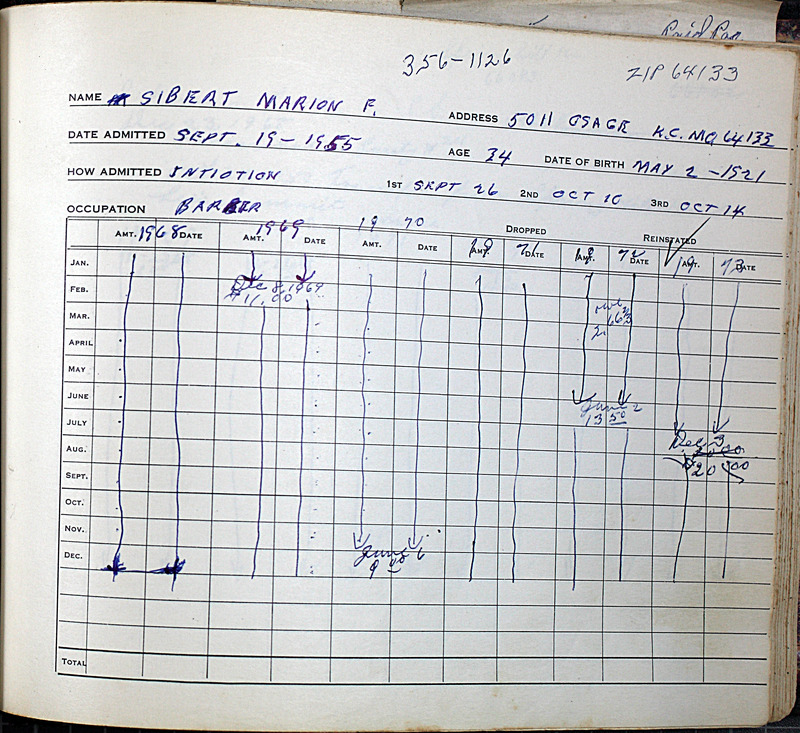 Paid
356-1126
ZIP 64133
NAME SIBERT MARION F. ADDRESS 5011 OSAGE K.C. MO 64133
DATE ADMITTED SEPT. 19-1955 AGE 34 DATE OF BIRTH MAY 2-1921
HOW ADMITTED INTIOTION 1ST SEPT 26 2ND OCT 10 3RD OCT 14
OCCUPATION BARBER
DROPPED REINSTATED
1968 1969 1970 1971 1972 1973
AMT. DATE AMT. DATE AMT. DATE AMT. DATE AMT. DATE AMT. DATE
JAN.
FEB. Dec 8, 1969
$11.00
MAR.
APRIL
MAY
JUNE June 2
JULY 13 50
AUG. Dec 3
SEPT. $20.00
OCT.
NOV.
DEC. June 6
9
TOTAL